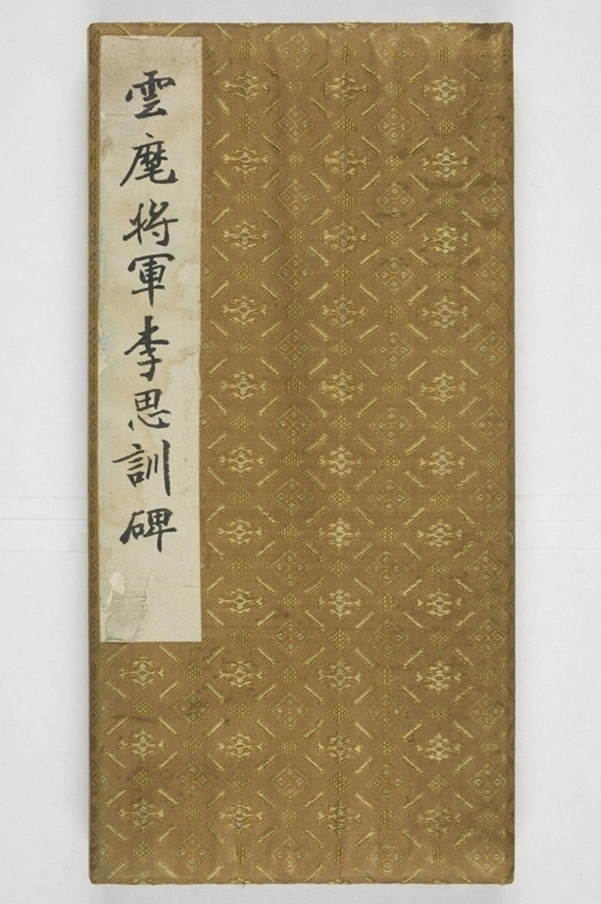 雲麾將軍李思訓碑